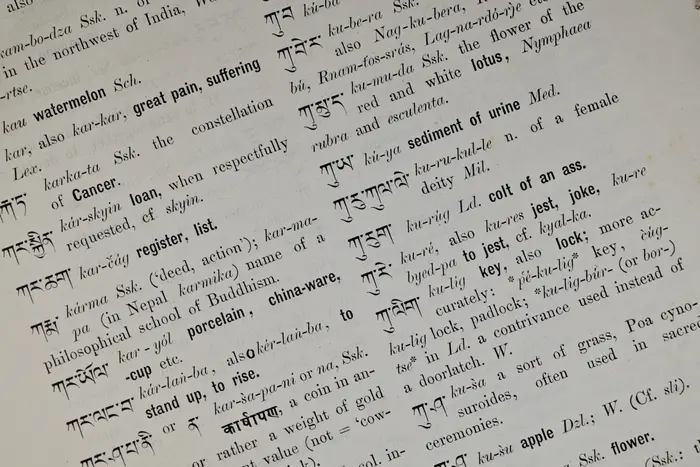 also
kam-bo-dza Ssk. n. of
in the northwest of India,
-rtse.
kau watermelon Sch.
kar, also kar-kar, great pain, suffering
Lex.
karka-ta Ssk. the constellation
of Cancer.
ཀར་སྐྱིན་ kár-skyin loan, when respectfully
requested, cf. skyin.
ཀར་ཆག་ kar-čág register, list.
ཀརྨ་ kárma Ssk. ('deed, action'); kar-ma-
pa (in Nepal karmika) name of a
philosophical school of Buddhism.
ཀར་ཡོལ་ kar-yól porcelain, china-ware,
-cup etc.
ཀར་ལང་བ་ kár-laṅ-ba, also kér-laṅ-ba, to
stand up, to rise.
ཀར་ཤ་པ་ནི་ or ན་ kar-ša-pa-ni or na, Ssk.
कार्षापण, a coin in an-
or rather a weight of gold
value (not = 'cow-
col. in-
ཀུ་བ་ kú-ba
ཀུ་བེ་ར་ ku-be-ra Ssk.
also Nag-ku-bera,
bú, Rnam-tos-srás, Lag-na-rdó-rje
ཀུ་མུ་ད་ ku-mu-da Ssk. the flower of the
red and white lotus, Nymphaea
rubra and esculenta.
ཀུ་ཡ་ kú-ya sediment of urine Med.
ཀུ་རུ་ཀུལ་ལེ་ ku-ru-kul-le n. of a female
deity Mil.
ཀུ་རུག་ ku-rùg Ld. colt of an ass.
ཀུ་རེ་ ku-ré, also ku-res jest, joke, ku-re
byed-pa to jest, cf. kyal-ka.
ཀུ་ལིག་ ku-lig key, also lock; more ac-
curately: *pé-ku-lig* key, čúg-
ku-lig lock, padlock; *ku-lig-búr- (or bor-)
tse* in Ld. a contrivance used instead of
a doorlatch. W.
ཀུ་ཤ་ ku-ša a sort of grass, Poa cyno-
suroides, often used in sacred
ceremonies.
ku-šu apple Dzl.; W. (Cf. sli).
Ssk. flower.
(Ssk.: